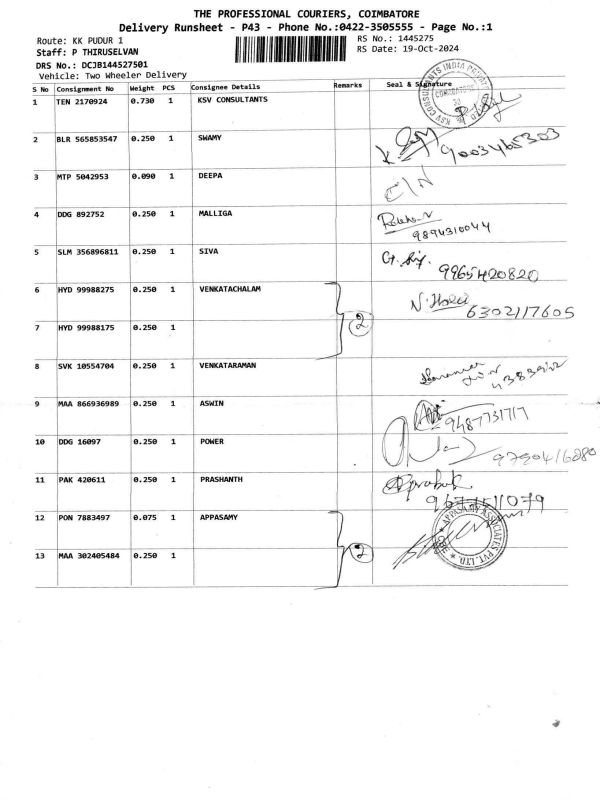 THE PROFESSIONAL COURIERS, COIMBATORE
Delivery Runsheet - P43 - Phone No.:0422-3505555 - Page No.:1
Route: KK PUDUR 1
RS No.: 1445275
Staff: P THIRUSELVAN
RS Date: 19-Oct-2024
DRS No.: DCJB144527501
Vehicle: Two Wheeler Delivery
S No Consignment No Weight PCS Consignee Details Remarks Seal & Signature
1 TEN 2170924 0.730 1 KSV CONSULTANTS
KSV CONSULTANTS INDIA PRIVATE
2 BLR 565853547 0.250 1 SWAMY
9003465303
3 MTP 5042953 0.090 1 DEEPA
4 DDG 892752 0.250 1 MALLIGA
9894310044
5 SLM 356896811 0.250 1 SIVA
9965420820
6 HYD 99988275 0.250 1 VENKATACHALAM
6302117605
2
7 HYD 99988175 0.250 1
8 SVK 10554704 0.250 1 VENKATARAMAN
9 MAA 866936989 0.250 1 ASWIN
9487731717
10 DDG 16097 0.250 1 POWER
9790416880
11 PAK 420611 0.250 1 PRASHANTH
12 PON 7883497 0.075 1 APPASAMY
APPASAMY ASSOCIATES PVT. LTD.
2
13 MAA 302405484 0.250 1